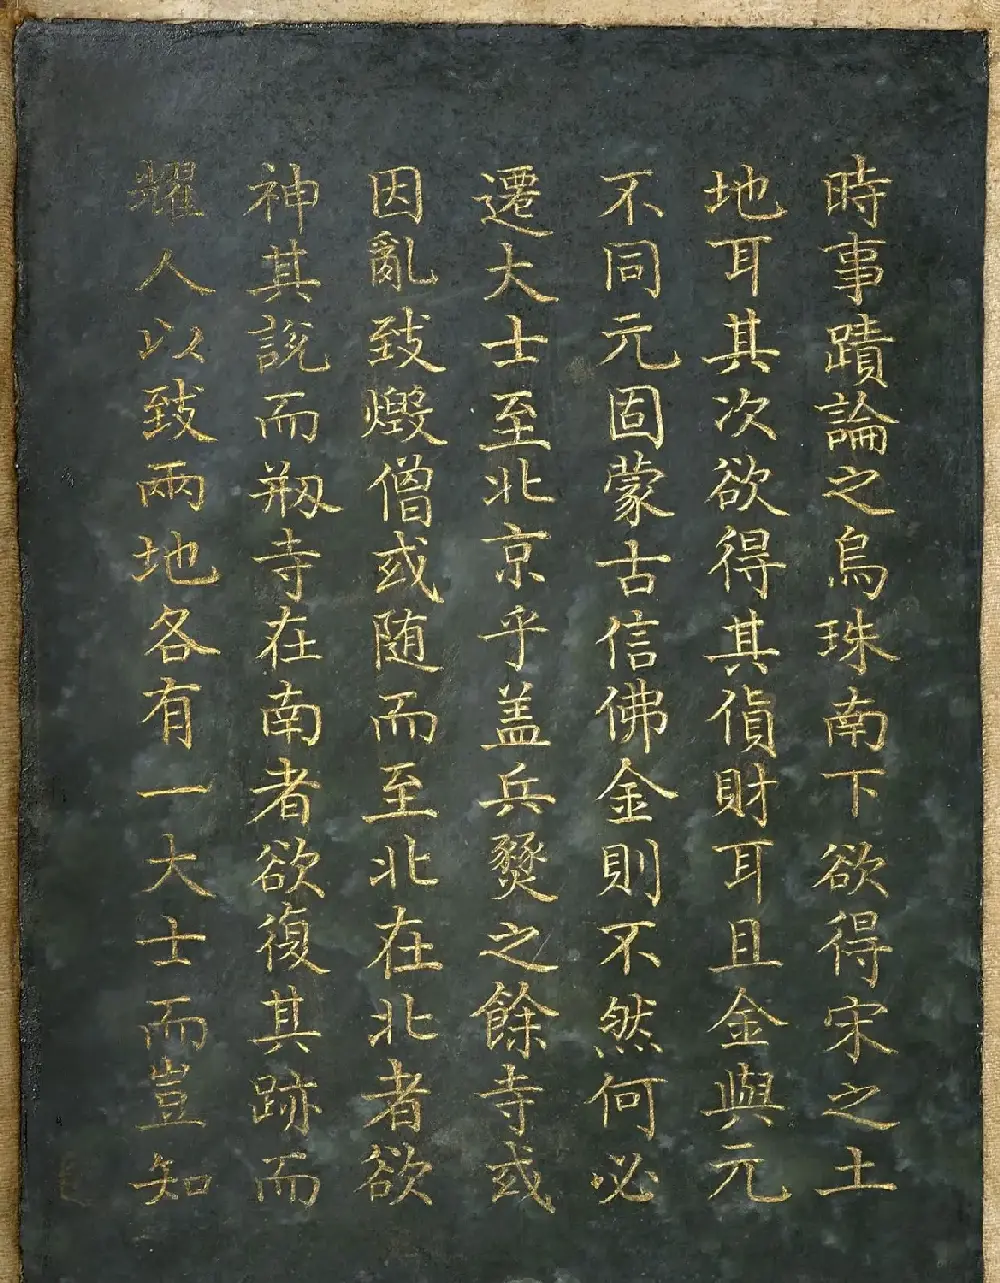 時事蹟論之烏珠南下欲得宋之土
地耳其次欲得其貨財耳且金與元
不同元固蒙古信佛金則不然何必
遷大士至北京乎盖兵燹之餘寺或
因亂致燬僧或随而至北在北者欲
神其說而剏寺在南者欲復其跡而
耀人以致兩地各有一大士而豈知